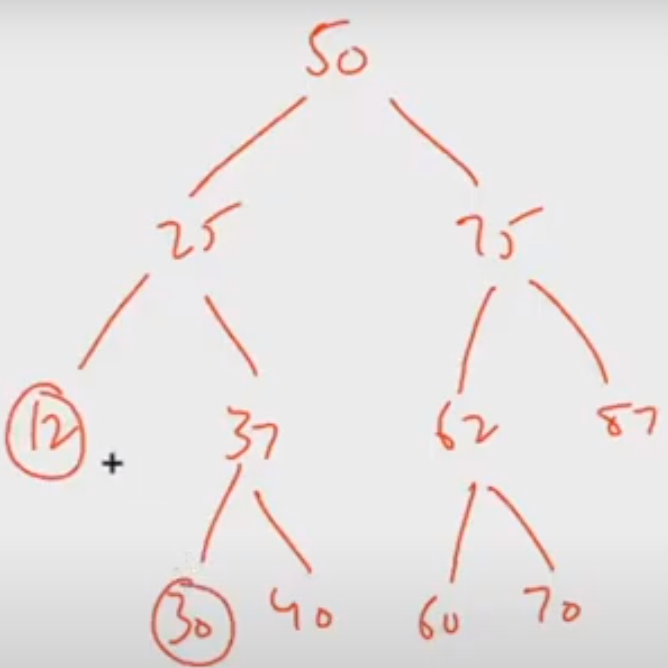 50
25 75
12 37 62 87
30 40 60 70